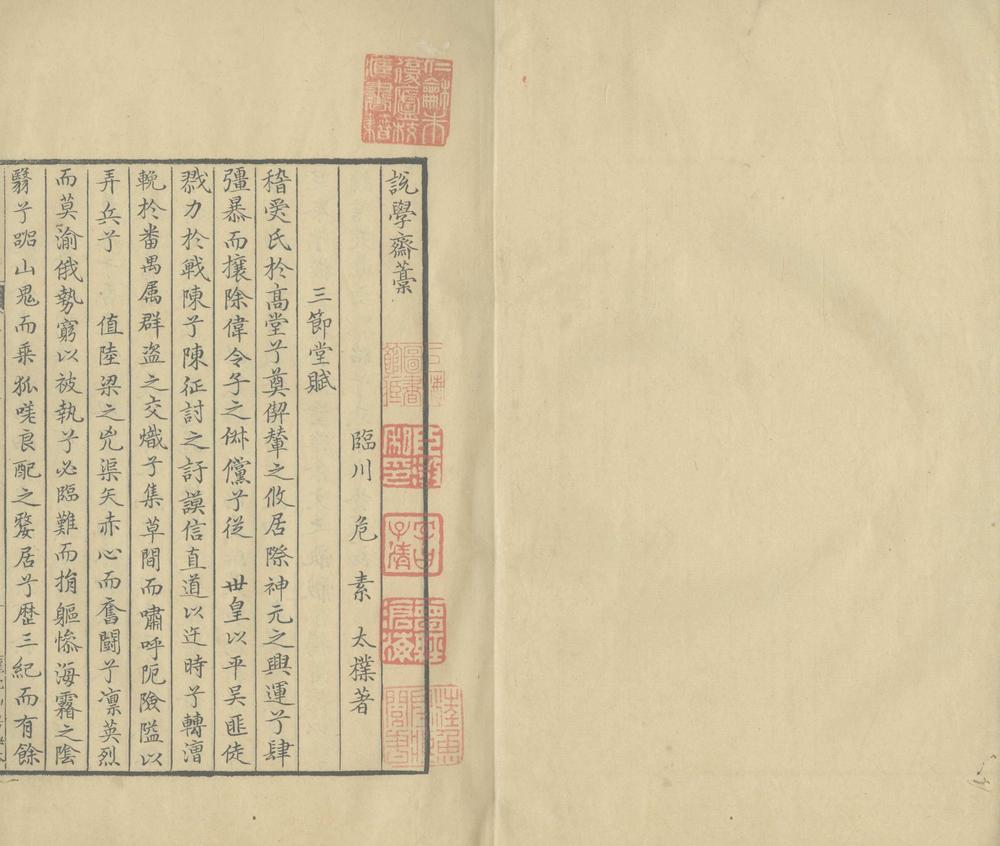 說學齋藁
臨川 危 素 太樸著
三節堂賦
稽奚氏於高堂兮奠偰輦之攸居際神元之興運兮肆
彊暴而攘除偉令子之俶儻兮從 世皇以平吳匪徒
戮力於戰陳兮陳征討之訏謨信直道以迕時兮轉漕
輓於番禺属群盗之交熾兮集草間而嘯呼阨險隘以
弄兵兮 值陸梁之兇渠矢赤心而奮鬬兮凛英烈
而莫渝俄勢窮以被執兮必臨難而捐軀惨海霧之陰
翳兮
山鬼而乘狐嗟良配之嫠居兮歷三紀而有餘